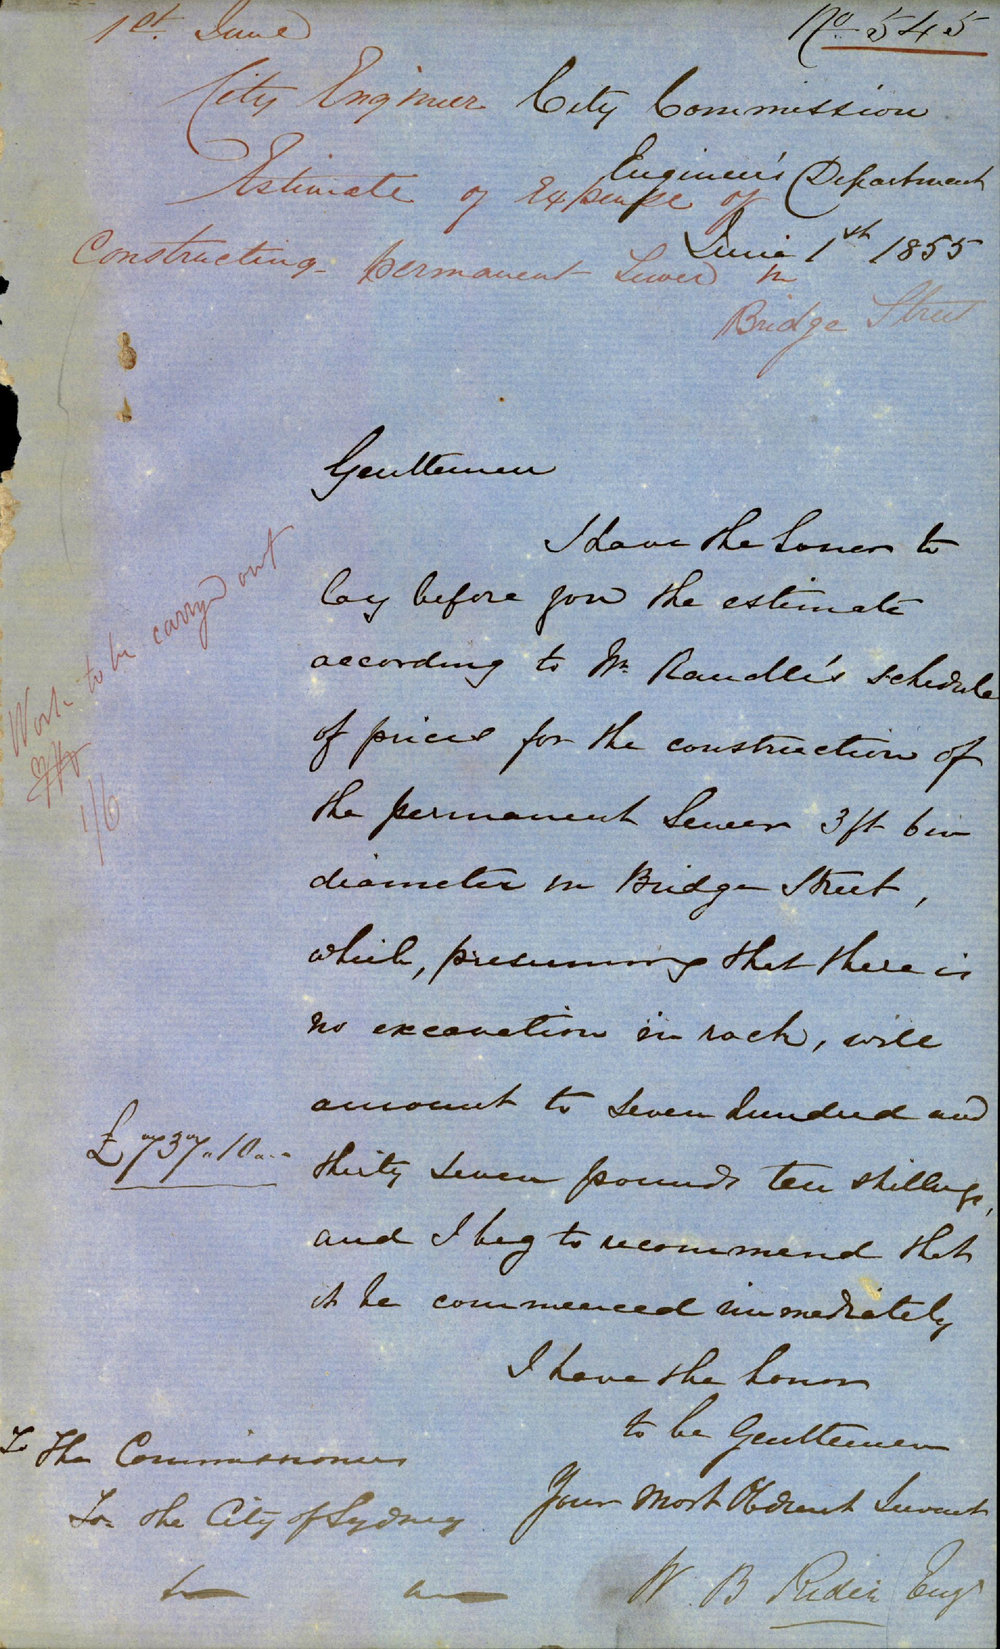 1st. June
No 545
City Engineer
City Commission
Engineer's Department
Estimate of Expense of
June 1st 1855
Constructing permanent Sewer in
Bridge Street
Gentlemen
I have the honor to
lay before you the estimate
according to Mr. Randle's schedule
of prices for the construction of
the permanent Sewer 3ft 6in
diameter in Bridge Street,
which, presuming that there is
no excavation in rock, will
amount to seven hundred and
£737,,10,,-
thirty seven pounds ten shillings,
and I beg to recommend that
it be commenced immediately
I have the honor
to be Gentlemen
Your Most Obedient Servant
W B Rider Engr
Work to be carry'd out
1/6
To The Commissioners
For the City of Sydney